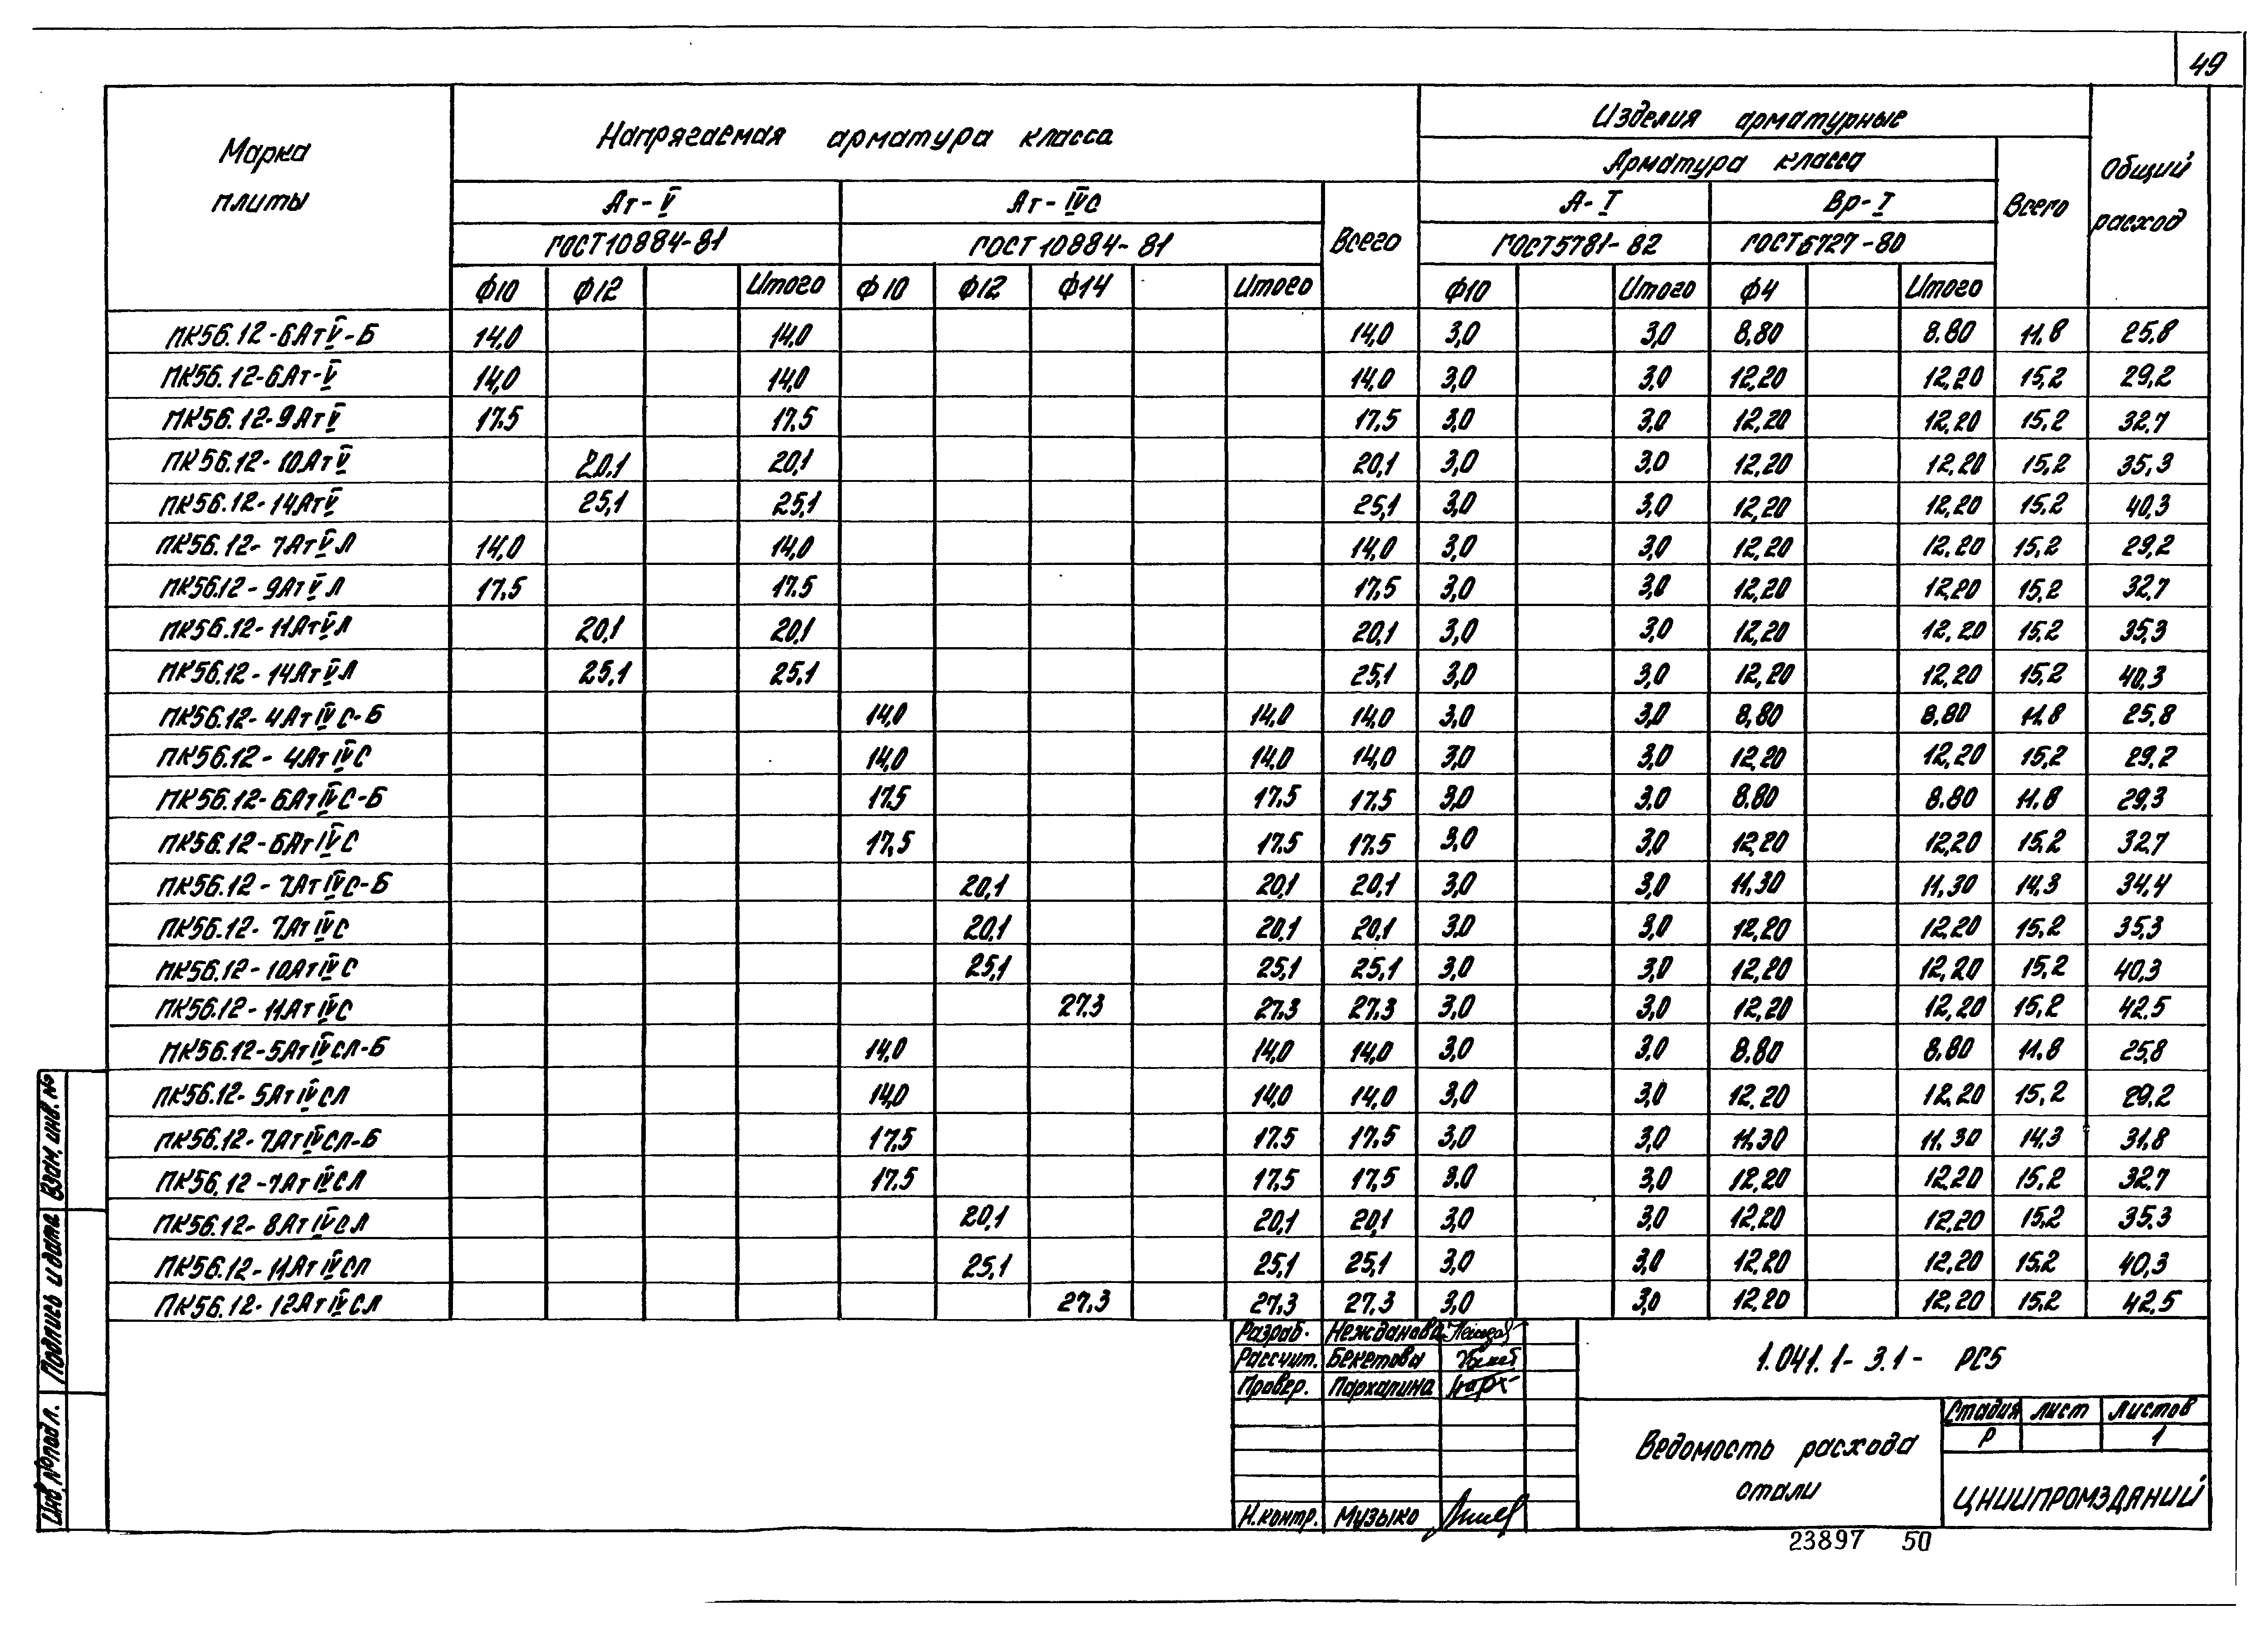 49
Марка плиты
Напрягаемая арматура класса
Изделия арматурные
Общий расход
Арматура класса
Всего
Ат-V
Ат-IVС
Всего
А-I
Вр-I
ГОСТ 10884-81
ГОСТ 10884-81
ГОСТ 5781-82
ГОСТ 6727-80
Ф10 Ф12 Итого Ф10 Ф12 Ф14 Итого Ф10 Итого Ф4 Итого
ПК56.12-6АтV-Б 14,0 14,0 14,0 3,0 3,0 8.80 8.80 11.8 25,8
ПК56.12-6Ат-V 14,0 14,0 14,0 3,0 3,0 12,20 12,20 15,2 29,2
ПК56.12-9АтV 17.5 17.5 17.5 3,0 3,0 12,20 12,20 15,2 32,7
ПК56.12-10АтV 20,1 20,1 20,1 3,0 3,0 12,20 12,20 15,2 35,3
ПК56.12-14АтV 25,1 25,1 25,1 3,0 3,0 12,20 12,20 15,2 40,3
ПК56.12-7АтVЛ 14,0 14,0 14,0 3,0 3,0 12,20 12,20 15,2 29,2
ПК56.12-9АтVЛ 17.5 17.5 17.5 3,0 3,0 12,20 12,20 15,2 32,7
ПК56.12-11АтVЛ 20,1 20,1 20,1 3,0 3,0 12,20 12,20 15,2 35,3
ПК56.12-14АтVЛ 25,1 25,1 25,1 3,0 3,0 12,20 12,20 15,2 40,3
ПК56.12-4АтIVС-Б 14,0 14,0 14,0 3,0 3,0 8,80 8,80 11.8 25,8
ПК56.12-4АтIVС 14,0 14,0 14,0 3,0 3,0 12,20 12,20 15,2 29,2
ПК56.12-6АтIVС-Б 17.5 17.5 17.5 3,0 3,0 8.80 8.80 11.8 29,3
ПК56.12-6АтIVС 17,5 17.5 17.5 3,0 3,0 12,20 12,20 15,2 32,7
ПК56.12-7АтIVС-Б 20,1 20,1 20,1 3,0 3,0 11.30 11.30 14,3 34,4
ПК56.12-7АтIVС 20,1 20,1 20,1 3,0 3,0 12,20 12,20 15,2 35,3
ПК56.12-10АтIVС 25,1 25,1 25,1 3,0 3,0 12,20 12,20 15,2 40,3
ПК56.12-11АтIVС 27.3 27.3 27.3 3,0 3,0 12,20 12,20 15,2 42.5
ПК56.12-5АтIVСЛ-Б 14,0 14,0 14,0 3,0 3,0 8.80 8.80 11.8 25,8
ПК56.12-5АтIVСЛ 14,0 14,0 14,0 3,0 3,0 12,20 12,20 15,2 29,2
ПК56.12-7АтIVСЛ-Б 17,5 17.5 17,5 3,0 3,0 11,30 11.30 14,3 31,8
ПК56.12-7АтIVСЛ 17.5 17,5 17,5 3,0 3,0 12,20 12,20 15,2 32,7
ПК56.12-8АтIVСЛ 20,1 20,1 20,1 3,0 3,0 12,20 12,20 15,2 35,3
ПК56.12-11АтIVСЛ 25,1 25,1 25,1 3,0 3,0 12,20 12,20 15,2 40,3
ПК56.12-12АтIVСЛ 27.3 27,3 27.3 3,0 3,0 12,20 12,20 15,2 42.5
Разраб. Нежданова
Рассчит. Бекетова
Провер. Пархалина
Н.контр. Музыко
1.041.1-3.1- РС5
Ведомость расхода
стали
Стадия лист листов
Р 1
ЦНИИПРОМЗДАНИЙ
Инв.№подл. Подпись и дата Взам.инв.№
23897 50